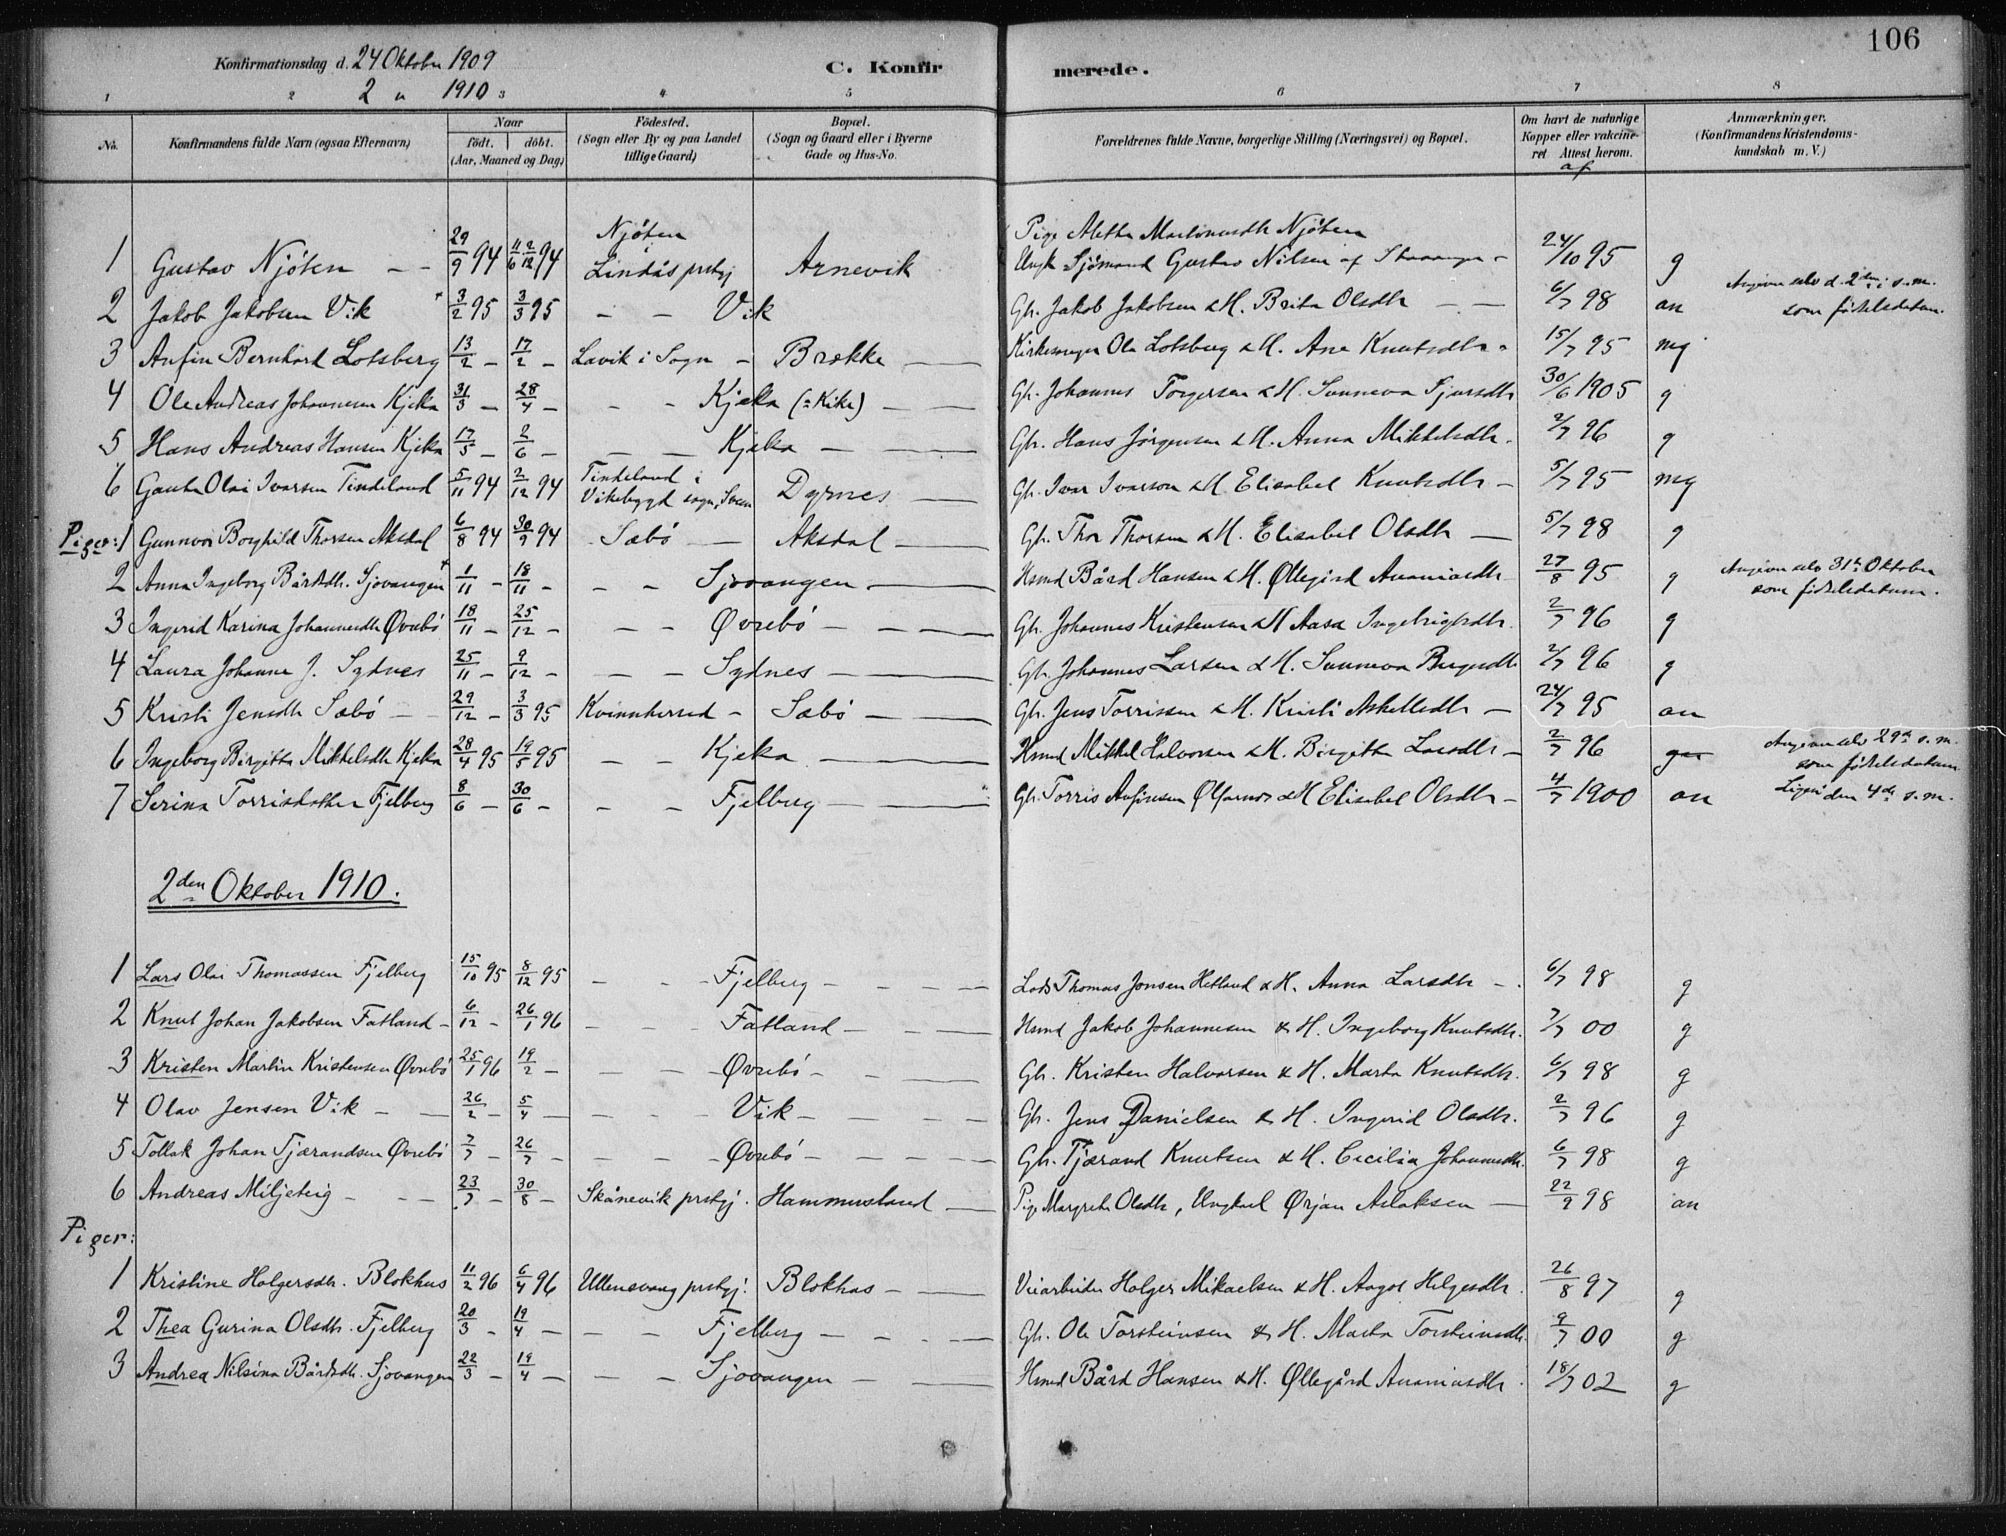 106
Konfirmationsdag d. 24 Oktober 1909
2 " 1910
C. Konfirmerede.
1 2 3 4 5 6 7 8
No. Konfirmandens fulde Navn (ogsaa Efternavn) Naar födt. döbt. (Aar, Maaned og Dag) Födested. (Sogn eller By og paa Landet tillige Gaard) Bopæl. (Sogn og Gaard eller i Byerne Gade og Hus-No. Forældrenes fulde Navne, borgerlige Stilling (Næringsvei) og Bopæl. Om havt de naturlige Kopper eller vakcineret Attest herom. af Anmærkninger. (Konfirmandens Kristendomskundskab m. V.)
1 Gustav Njöten - - 29/9 94 11/6 9/12 94 Njöten i Lindås prstgj Arnevik Pige Alethe Martinusdtr Njöten Ungk Sjömand Gustav Nilsen af Stavanger - 24/10 95 g
2 Jakob Jakobsen Vik + 3/2 95 3/3 95 - - Vik Gbr. Jakob Jakobsen & H. Brita Olsdtr - - 6/7 98 an Angiver selv d. 2den i s.m. som födselsdatum.
3 Anfin Bernhard Lotsberg 13/2 - 17/2 - Lavik i Sogn - Brække Kirkesanger Ole Lotsberg & H. Ane Knutsdtr - 15/7 95 mg
4 Ole Andreas Johannesen Kjeka 31/3 - 28/4 - - - Kjeka (= Kike) - Gbr. Johannes Torgersen & H. Sunneva Sjursdtr 30/6 1905 g
5 Hans Andreas Hansen Kjeka 17/5 - 2/6 - - - Kjeka - Gbr. Hans Jörgensen & H. Anna Mikkelsdtr. 2/7 96 g
6 Gaute Olai Ivarsen Tindeland 5/11 94 2/12 94 Tindeland i Vikebygd sogn, Sveen Dyrnes Gbr. Ivar Ivarson & H. Elisabet Knutsdtr - 5/7 95 mg
Piger: 1 Gunnvor Borghild Thorsen Aksdal 6/8 94 30/9 94 Sæbö - Aksdal - Gbr. Thor Thorsen & H. Elisabet Olsdtr - 5/7 98 g
2 Anna Ingeborg Bårdsdtr. Sjovangen + 1/11 - 18/11 - - - Sjovangen - Hsmd Bård Hansen & H. Øllegård Ananiasdtr 27/8 95 g Angiver selv 31te Oktober som födselsdatum.
3 Ingerid Karina Johannesdtr Øvrebö 18/11 - 25/12 - - - Øvrebö - Gbr. Johannes Kristensen & H Aasa Ingebrigtsdtr. 2/7 96 g
4 Laura Johanne J. Sydnes 25/11 - 9/12 - - - Sydnes - Gbr. Johannes Larsen & H. Sunneva Birgersdtr 2/7 96 g
5 Kristi Jensdtr Sæbö - 29/12 - 3/3 95 Kvinnherred - Sæbö - Gbr. Jens Torrissen & H. Kristi Askelledtr - 24/7 95 an
6 Ingeborg Birgitte Mikkelsdtr Kjeka 28/4 95 19/5 95 - - Kjeka - Hsmd Mikkel Halvorsen & H. Birgitte Larsdtr - 2/7 96 Angiver selv 29de s.m. som födselsdatum
7 Serina Torrisdotter Fjelberg 8/6 - 30/6 - - Fjelberg - Gbr Torris Anfinsen Ølfarnes & H Elisabet Olsdtr - 4/7 1900 an Ligeså den 4de s.m.
2den Oktober 1910.
1 Lars Olai Thomassen Fjelberg 15/10 95 8/12 95 - - Fjelberg - - - Lods Thomas Jonsen Hetland & H. Anna Larsdtr - 6/7 98 g
2 Knut Johan Jakobsen Fatland - 6/12 - 26/1 96 - - Fatland - - Hsmd Jakob Johannesen & H. Ingeborg Knutsdtr. 7/7 00 g
3 Kristen Martin Kristensen Øvrebö 25/1 96 19/2 - - - Øvrebö - - Gbr. Kristen Halvorsen & H. Marta Knutsdtr. 6/7 98 g
4 Olav Jensen Vik - - 26/2 - 5/4 - - - Vik - - Gbr. Jens Danielsen & H. Ingerid Olsdtr. 2/7 96 g
5 Tollak Johan Tjærandsen Øvrebö 7/7 - 26/7 - - - Øvrebö - - Gbr. Tjærand Knutsen & H. Cecilia Johannesdtr. 6/7 98 g
6 Andreas Miljeteig - - - 23/7 - 30/8 - Skånevik prstgj. Hammersland - Pige Margrete Olsdtr, Ungkarl Ørjan Aslaksen - 22/9 98 an
Piger:
1 Kristine Holgersdtr. Blokhus 11/2 96 6/4 96 Ullensvang prstgj. Blokhus - Veiarbeider Holger Mikaelsen & H. Aagot Helgesdtr. 26/8 97 g
2 Thea Gurina Olsdtr. Fjelberg 20/3 - 19/4 - - - Fjelberg - - Gbr. Ole Torsteinsen & H. Marta Torsteinsdtr. 9/7 00 g
3 Andrea Nilsina Bårdsdtr. Sjovangen 22/3 - 19/4 - - - Sjovangen - Hsmd Bård Hansen & H. Øllegård Ananiasdtr 18/7 02 g